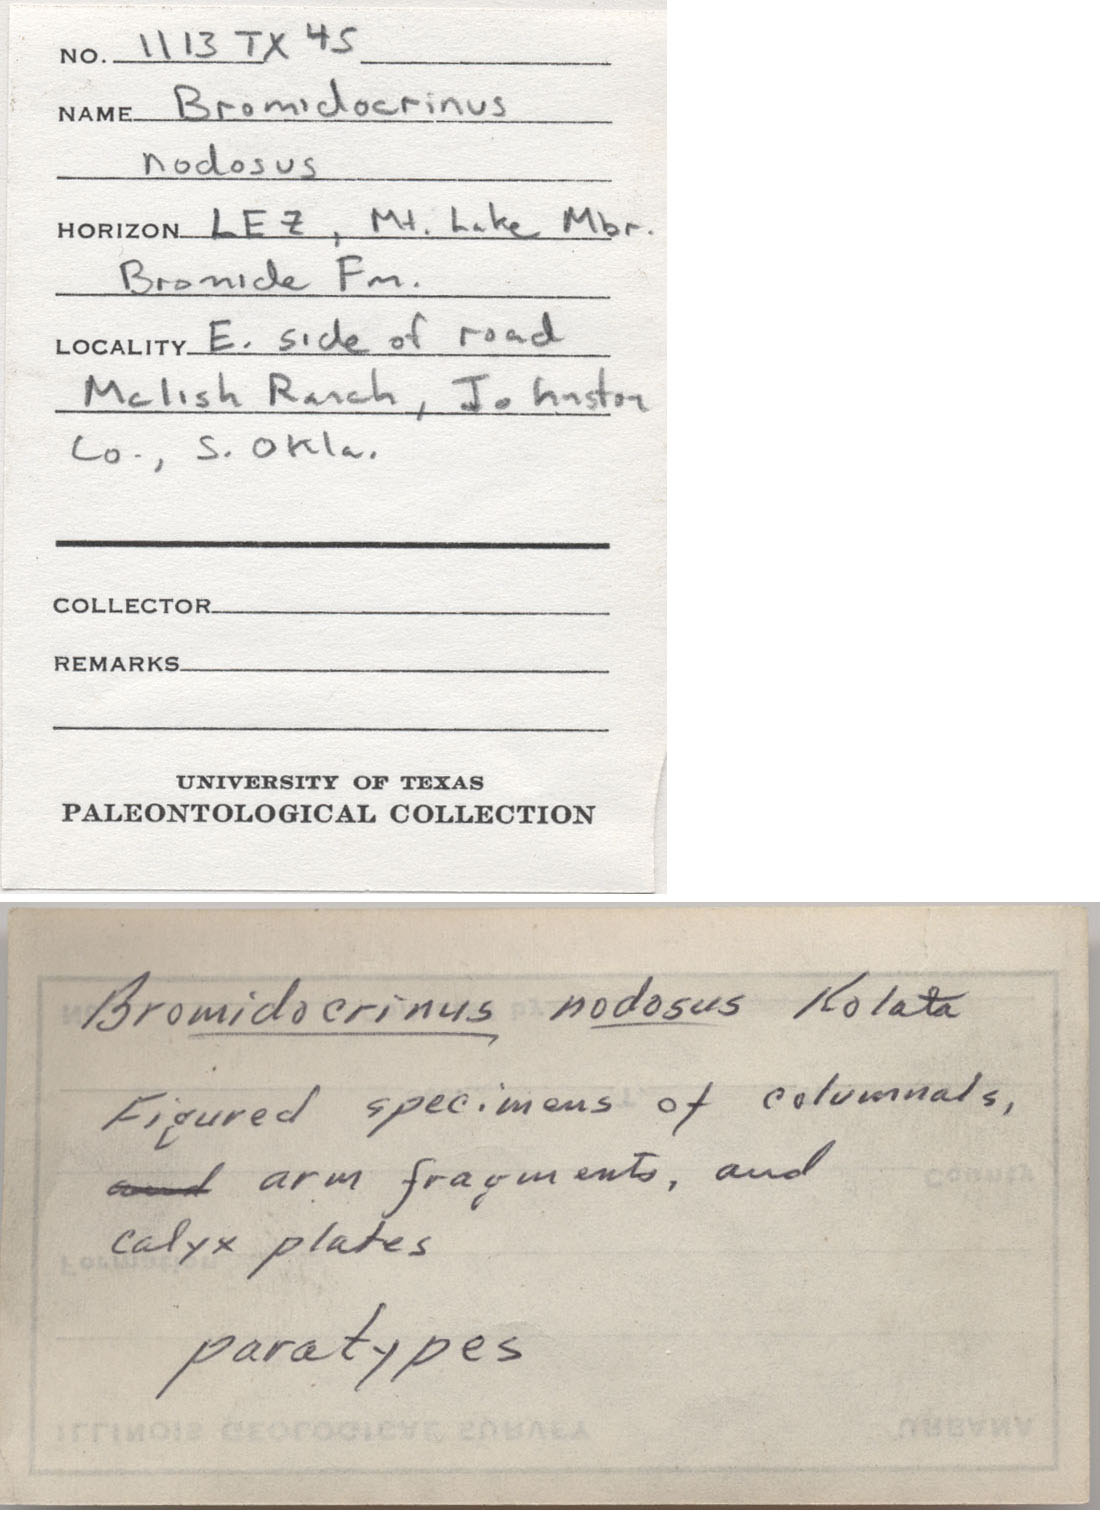 NO. 1113 TX 45
NAME Bromidocrinus
nodosus
HORIZON LEZ, Mt. Lake Mbr.
Bromide Fm.
LOCALITY E. side of road
Mclish Ranch, Johnston
Co., S. Okla.
COLLECTOR
REMARKS
UNIVERSITY OF TEXAS
PALEONTOLOGICAL COLLECTION
Bromidocrinus nodosus Kolata
Figured specimens of columnals,
and arm fragments, and
calyx plates
paratypes
County
Formation
ILLINOIS GEOLOGICAL SURVEY URBANA